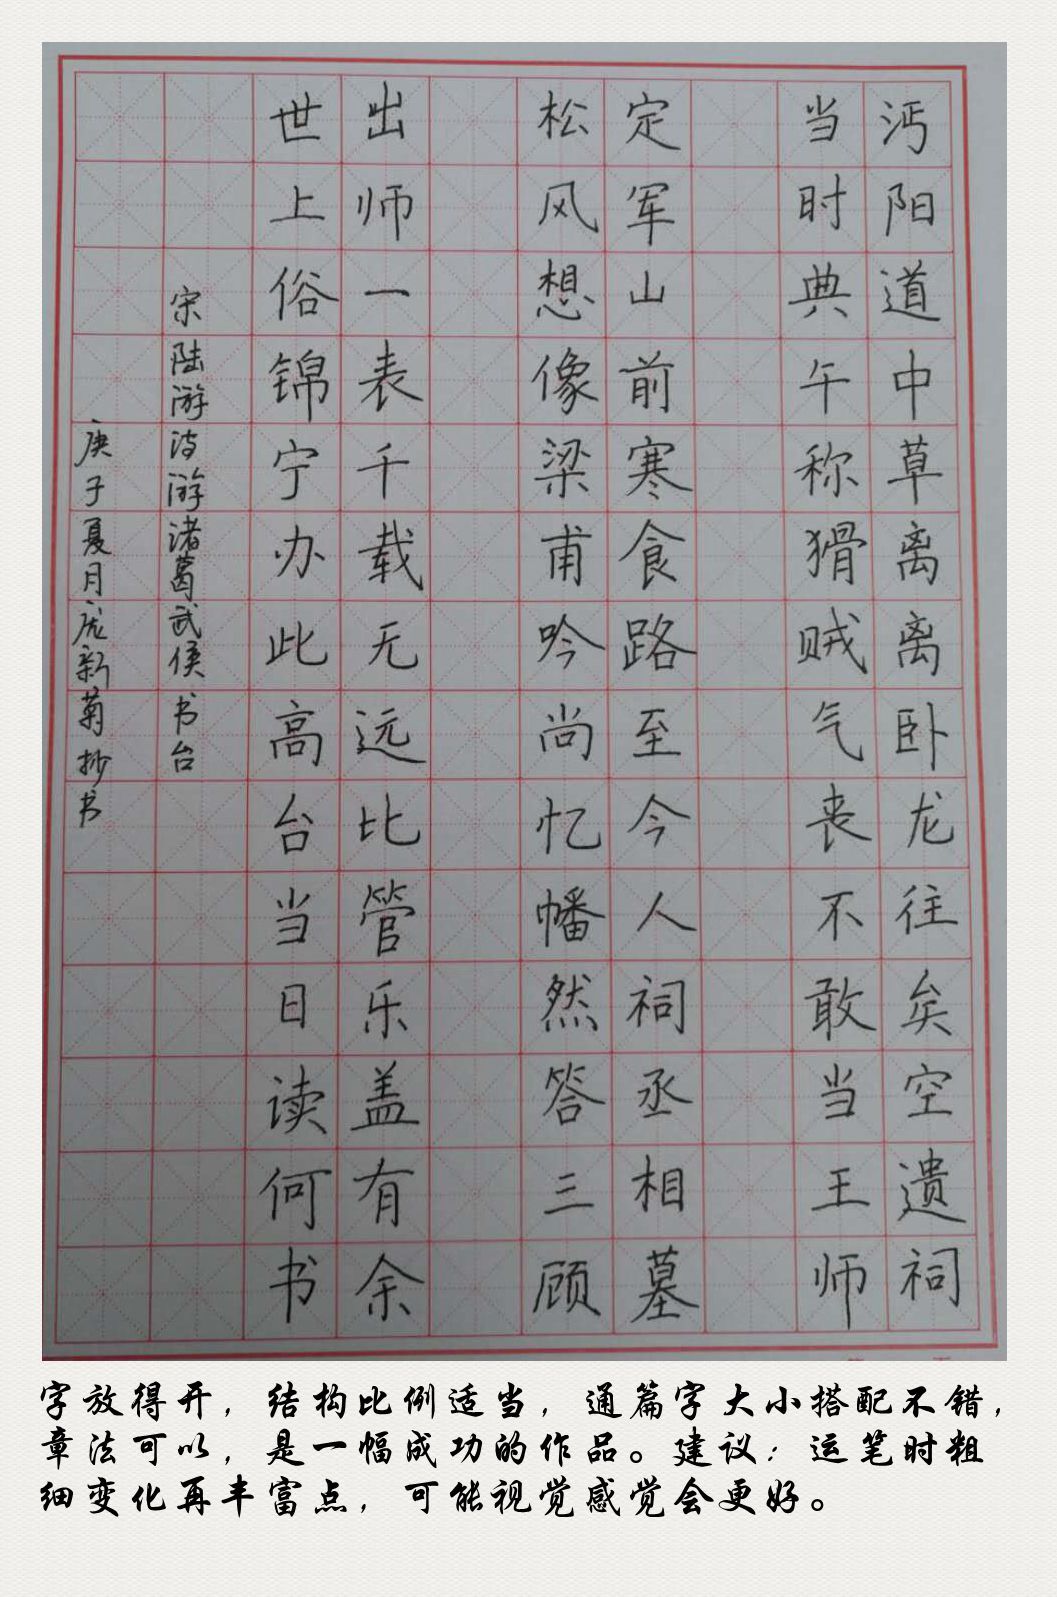 沔阳道中草离离卧龙往矣空遗祠
当时典午称猾贼气丧不敢当王师
定军山前寒食路至今人祠丞相墓
松风想像梁甫吟尚忆幡然答三顾
出师一表千载无远比管乐盖有余
世上俗锦宁办此高台当日读何书
宋陆游游诸葛武侯书台
庚子夏月庞新菊抄书
字放得开，结构比例适当，通篇字大小搭配不错，
章法可以，是一幅成功的作品。建议：运笔时粗
细变化再丰富点，可能视觉感觉会更好。